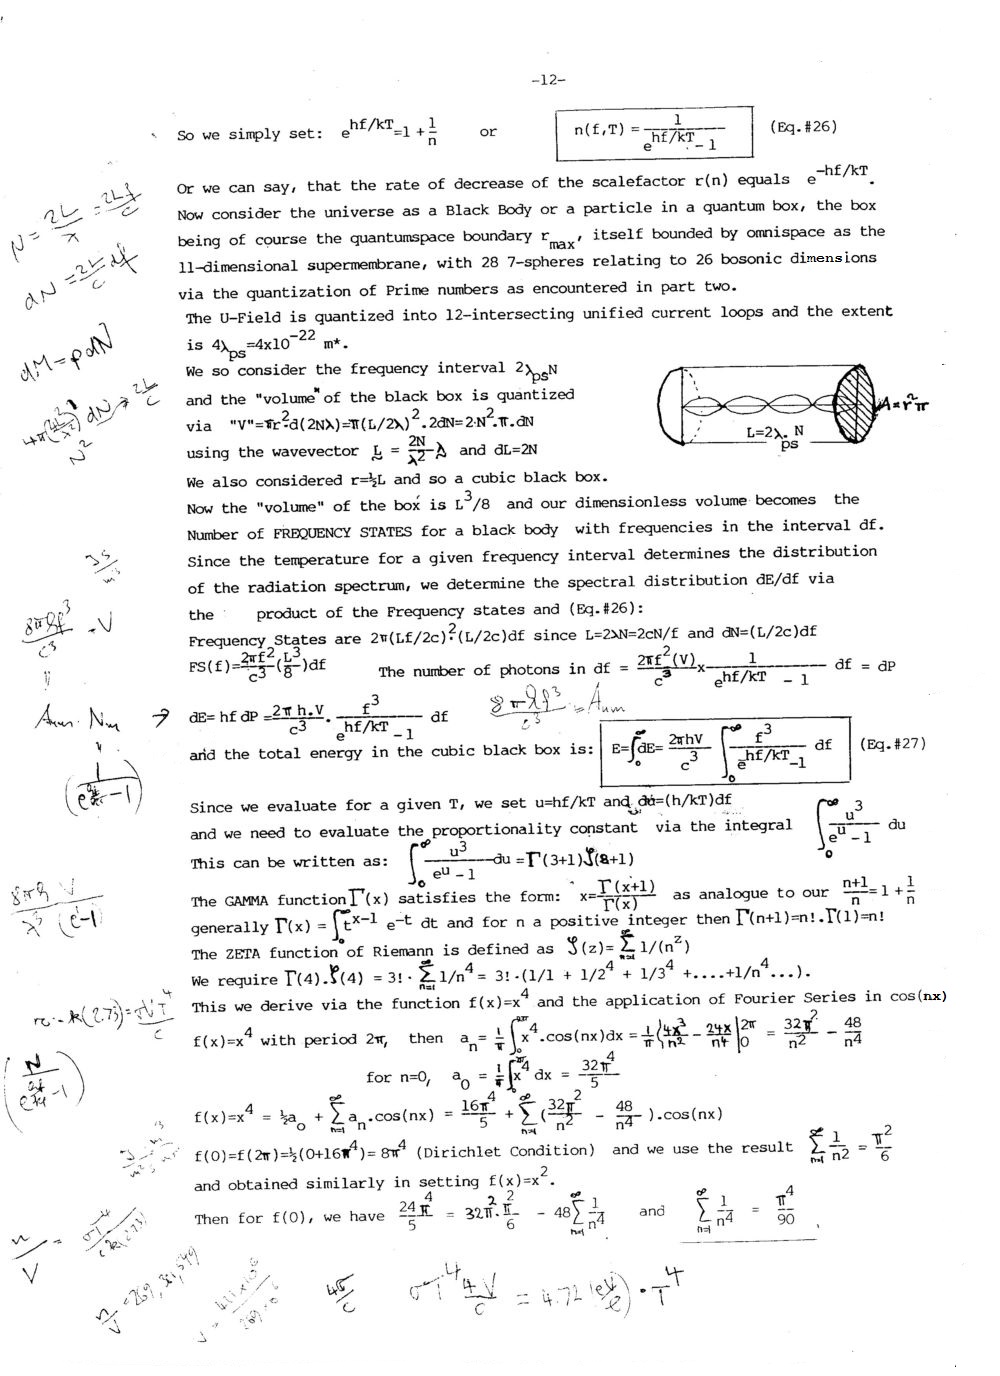 -12-
So we simply set: e^hf/kT = 1 + 1/n or n(f,T) = 1/(e^hf/kT - 1) (Eq.#26)
Or we can say, that the rate of decrease of the scalefactor r(n) equals e^-hf/kT.
N = 2L/λ = 2Lf/c
Now consider the universe as a Black Body or a particle in a quantum box, the box
being of course the quantumspace boundary r_max, itself bounded by omnispace as the
dN = 2L/c df
11-dimensional supermembrane, with 28 7-spheres relating to 26 bosonic dimensions
via the quantization of Prime numbers as encountered in part two.
The U-Field is quantized into 12-intersecting unified current loops and the extent
is 4λ_ps=4x10^-22 m*.
dM = ρdN
We so consider the frequency interval 2λ_ps N
and the "volume" of the black box is quantized
via "V"=πr².d(2Nλ)=π(L/2λ)².2dN=2.N².π.dN
using the wavevector L = 2N/λ² λ and dL=2N
A=r²π
L=2λ_ps.N
We also considered r=½L and so a cubic black box.
Now the "volume" of the box is L³/8 and our dimensionless volume becomes the
Number of FREQUENCY STATES for a black body with frequencies in the interval df.
Since the temperature for a given frequency interval determines the distribution
of the radiation spectrum, we determine the spectral distribution dE/df via
the product of the Frequency states and (Eq.#26):
Frequency States are 2π(Lf/2c)².(L/2c)df since L=2λN=2cN/f and dN=(L/2c)df
FS(f)=2πf²/c³ (L³/8)df The number of photons in df = 2πf²(V)/c³ x 1/(e^hf/kT - 1) df = dP
dE= hf dP = 2π h.V/c³ . f³/(e^hf/kT - 1) df
and the total energy in the cubic black box is: E=∫₀^∞ dE= 2πhV/c³ ∫₀^∞ f³/(e^hf/kT - 1) df (Eq.#27)
Since we evaluate for a given T, we set u=hf/kT and du=(h/kT)df
and we need to evaluate the proportionality constant via the integral ∫₀^∞ u³/(e^u - 1) du
This can be written as: ∫₀^∞ u³/(e^u - 1) du = Γ(3+1)ζ(3+1)
The GAMMA function Γ(x) satisfies the form: x=Γ(x+1)/Γ(x) as analogue to our (n+1)/n = 1 + 1/n
generally Γ(x) = ∫₀^∞ t^x-1 e^-t dt and for n a positive integer then Γ(n+1)=n!.Γ(1)=n!
The ZETA function of Riemann is defined as ζ(z)= Σ_{n=1}^∞ 1/(n^z)
We require Γ(4).ζ(4) = 3!· Σ_{n=1}^∞ 1/n⁴ = 3!·(1/1 + 1/2⁴ + 1/3⁴ +....+1/n⁴...).
This we derive via the function f(x)=x⁴ and the application of Fourier Series in cos(nx)
f(x)=x⁴ with period 2π, then a_n = 1/π ∫₀^2π x⁴.cos(nx)dx = 1/π {4x³/n² - 24x/n⁴ |₀^2π = 32π²/n² - 48/n⁴
for n=0, a₀ = 1/π ∫₀^2π x⁴ dx = 32π⁴/5
f(x)=x⁴ = ½a₀ + Σ_{n=1}^∞ a_n.cos(nx) = 16π⁴/5 + Σ_{n=1}^∞ (32π²/n² - 48/n⁴).cos(nx)
f(0)=f(2π)=½(0+16π⁴)= 8π⁴ (Dirichlet Condition) and we use the result Σ_{n=1}^∞ 1/n² = π²/6
and obtained similarly in setting f(x)=x².
Then for f(0), we have 24π⁴/5 = 32π².π²/6 - 48Σ_{n=1}^∞ 1/n⁴ and Σ_{n=1}^∞ 1/n⁴ = π⁴/90
4σ/c
σT⁴ 4V/c = 4.72 (eV/e) · T⁴